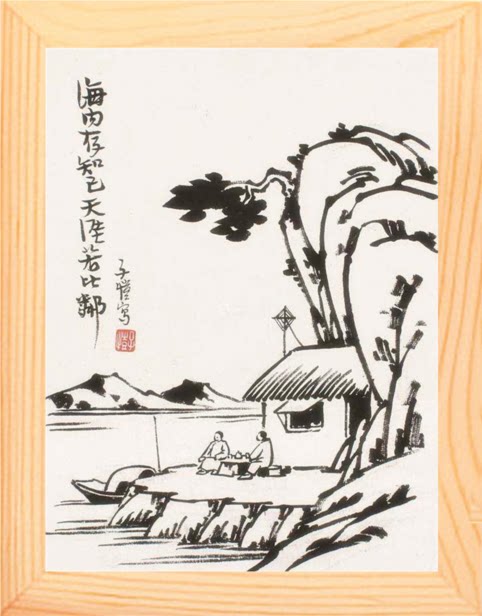 海内存知己天涯若比鄰
子愷写